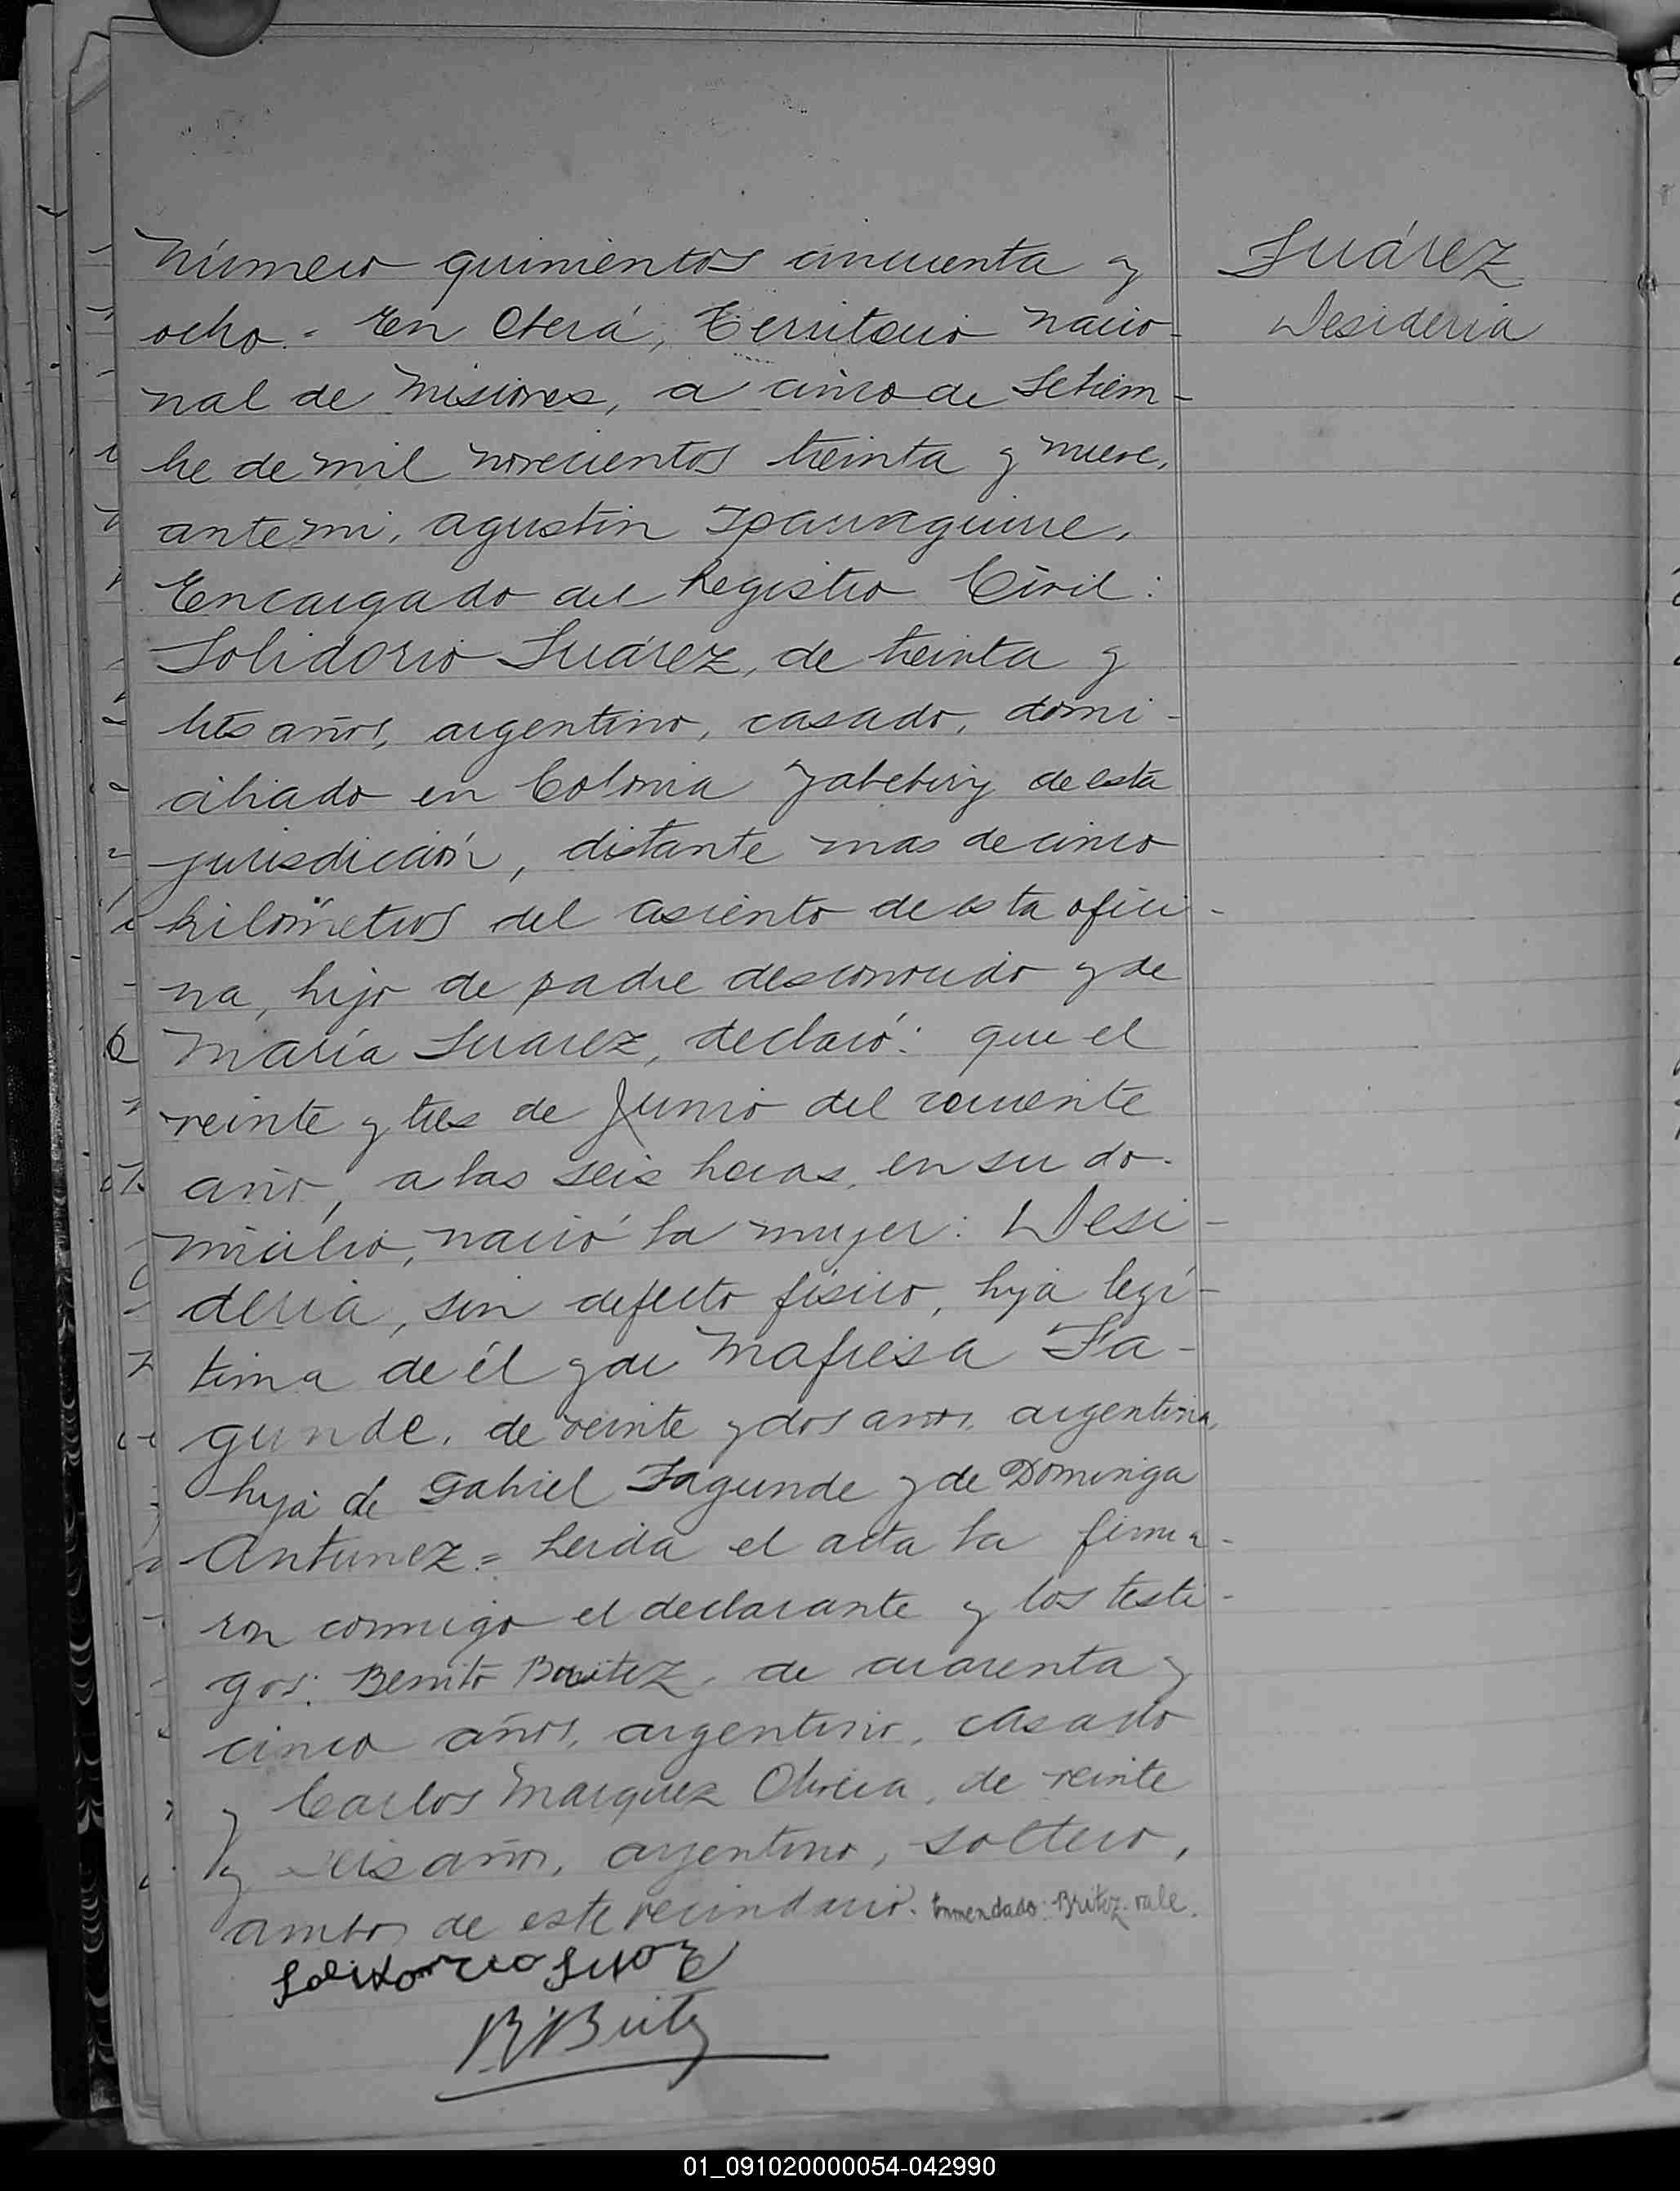 Suárez
Desideria
Número quinientos cincuenta y
ocho. = En Oberá, Territorio nacio-
nal de Misiones, a cinco de Setiem-
bre de mil novecientos treinta y nueve,
ante mi, Agustin Iparraguirre,
Encargado del Registro Civil:
Solidorio Suárez, de treinta y
trés años, argentino, casado, domi-
ciliado en Colonia Yabebiry de esta
jurisdicción, distante mas de cinco
kilómetros del asiento de esta ofici-
na, hijo de padre desconocido y de
María Suarez, declaró: que el
veinte y tres de Junio del corriente
año, a las seis horas, en su do-
micilio, nació la mujer: Desi-
deria, sin defecto físico, hija legí-
tima de él y de Mafiesa Fa-
gunde, de veinte y dos años, argentina,
hija de Gabriel Fagunde y de Dominga
Antunez = Leida el acta la firma-
ron conmigo el declarante y los testi-
gos: Benito Britez, de cuarenta y
cinco años, argentino, casado
y Carlos Marquez Olivera, de veinte
y seis años, argentino, soltero,
ambos de este vecindario. Enmendado: Britez. vale.
Solidorio Suarez
B. Britez
01_091020000054-042990